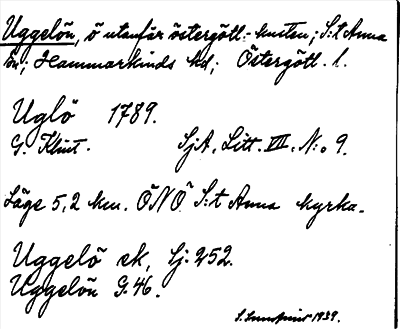 Uggelön, ö utanför östergötl.-kusten; S:t Anna
sn; Hammarkinds hd; Östergötl. l.
Uglö 1789.
G. Klint. SjA, Litt. VIII. N:o 9.
Läge 5,2 km. ÖNÖ S:t Anna kyrka.
Uggelö ek, Sj. 252.
Uggelön G. 46.
1939.